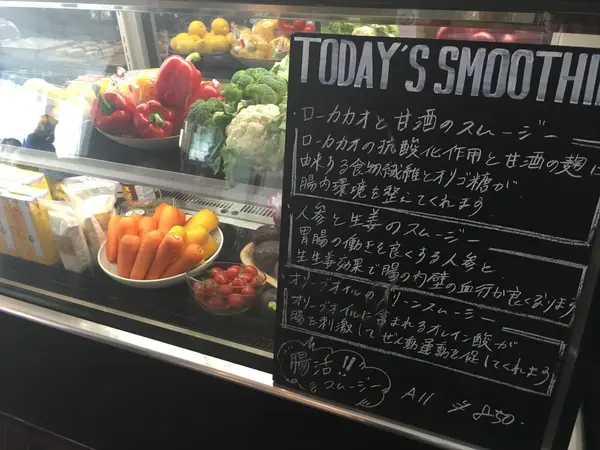 TODAY'S SMOOTHI
ローカカオと甘酒のスムージー
ローカカオの抗酸化作用と甘酒の麹に
由来する食物繊維とオリゴ糖が
腸内環境を整えてくれます
人参と生姜のスムージー
胃腸の働きを良くする人参と
生生姜効果で腸の内壁の血行が良くなります
オリーブオイルのグリーンスムージー
オリーブオイルに含まれるオレイン酸が
腸を刺激してぜん動運動を促してくれます
腸活!!
スムージー
All ¥850.